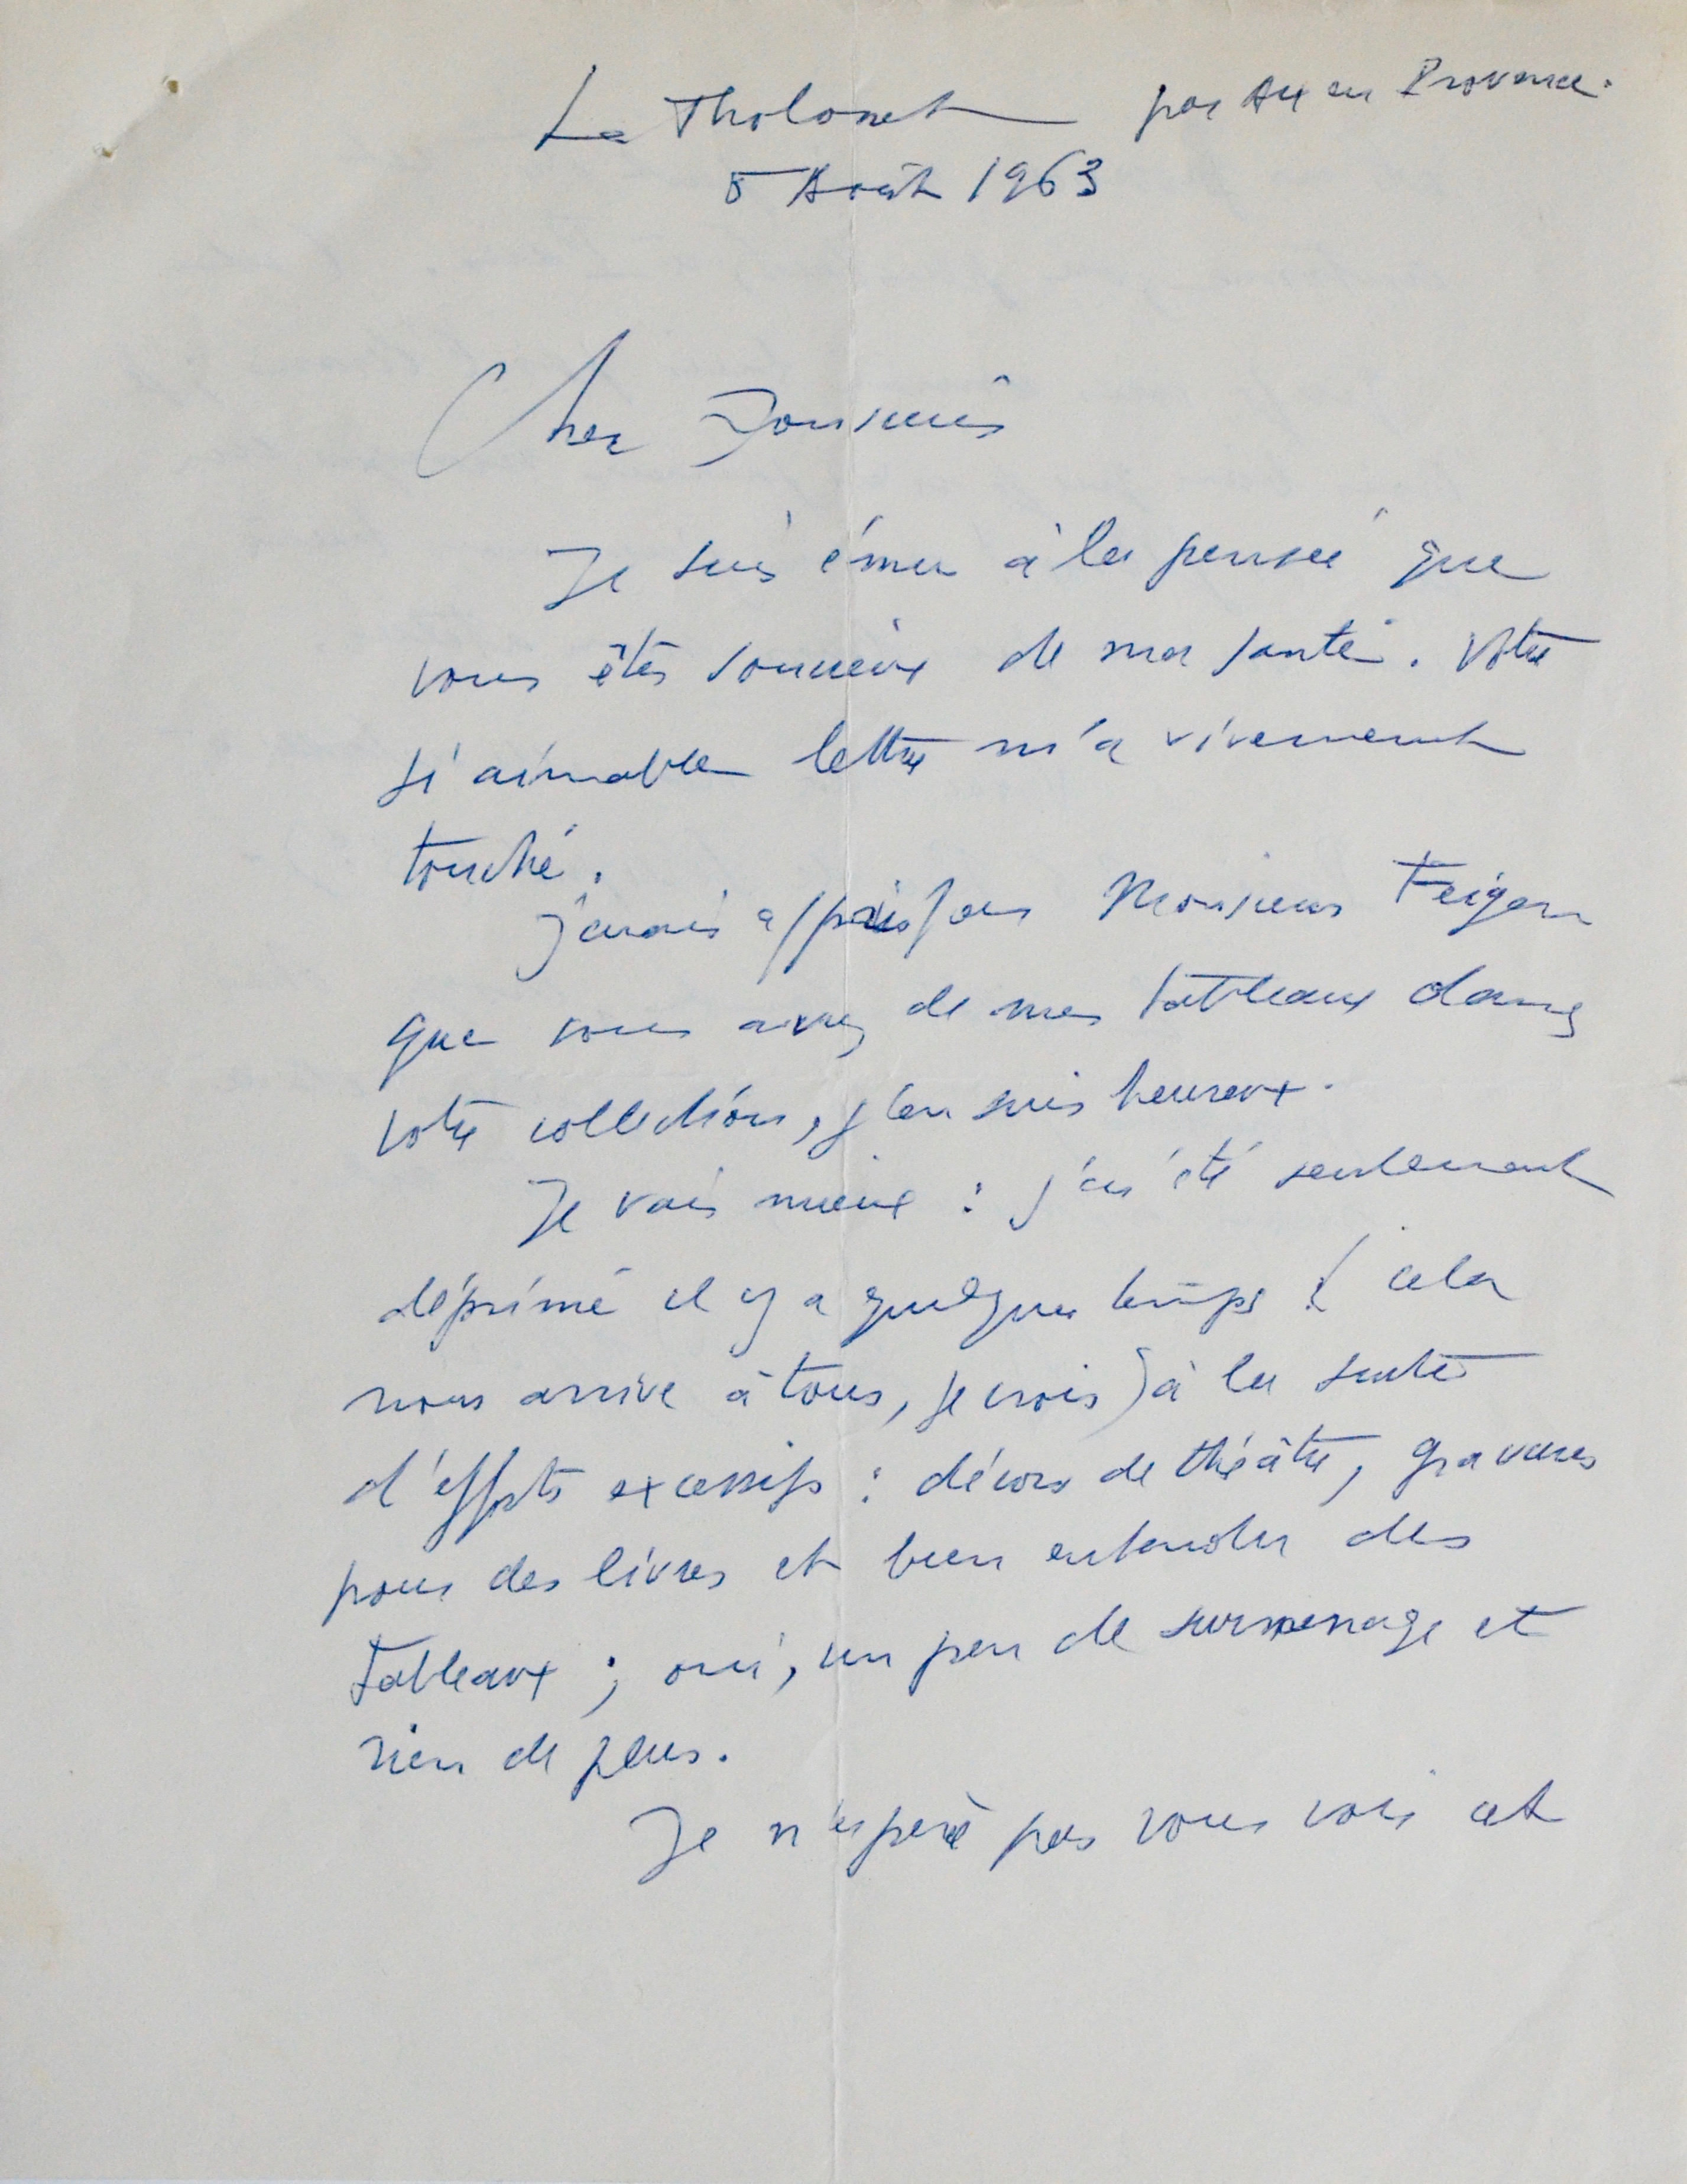 Le Tholonet par Aix en Provence.
5 Août 1963
Cher Monsieur
Je suis ému à la pensée que
vous êtes soucieux de ma santé. Votre
si aimable lettre m'a vivement
touché.
J'avais appris par Monsieur Feigen
que vous aviez de mes tableaux dans
votre collection, j'en suis heureux.
Je vais mieux : j'ai été seulement
déprimé il y a quelques temps (cela
nous arrive à tous, je crois) à la suite
d'efforts excessifs : décors de théâtre, gravures
pour des livres et bien entendu des
tableaux ; oui, un peu de surmenage et
rien de plus.
Je n'espère pas vous voir cet